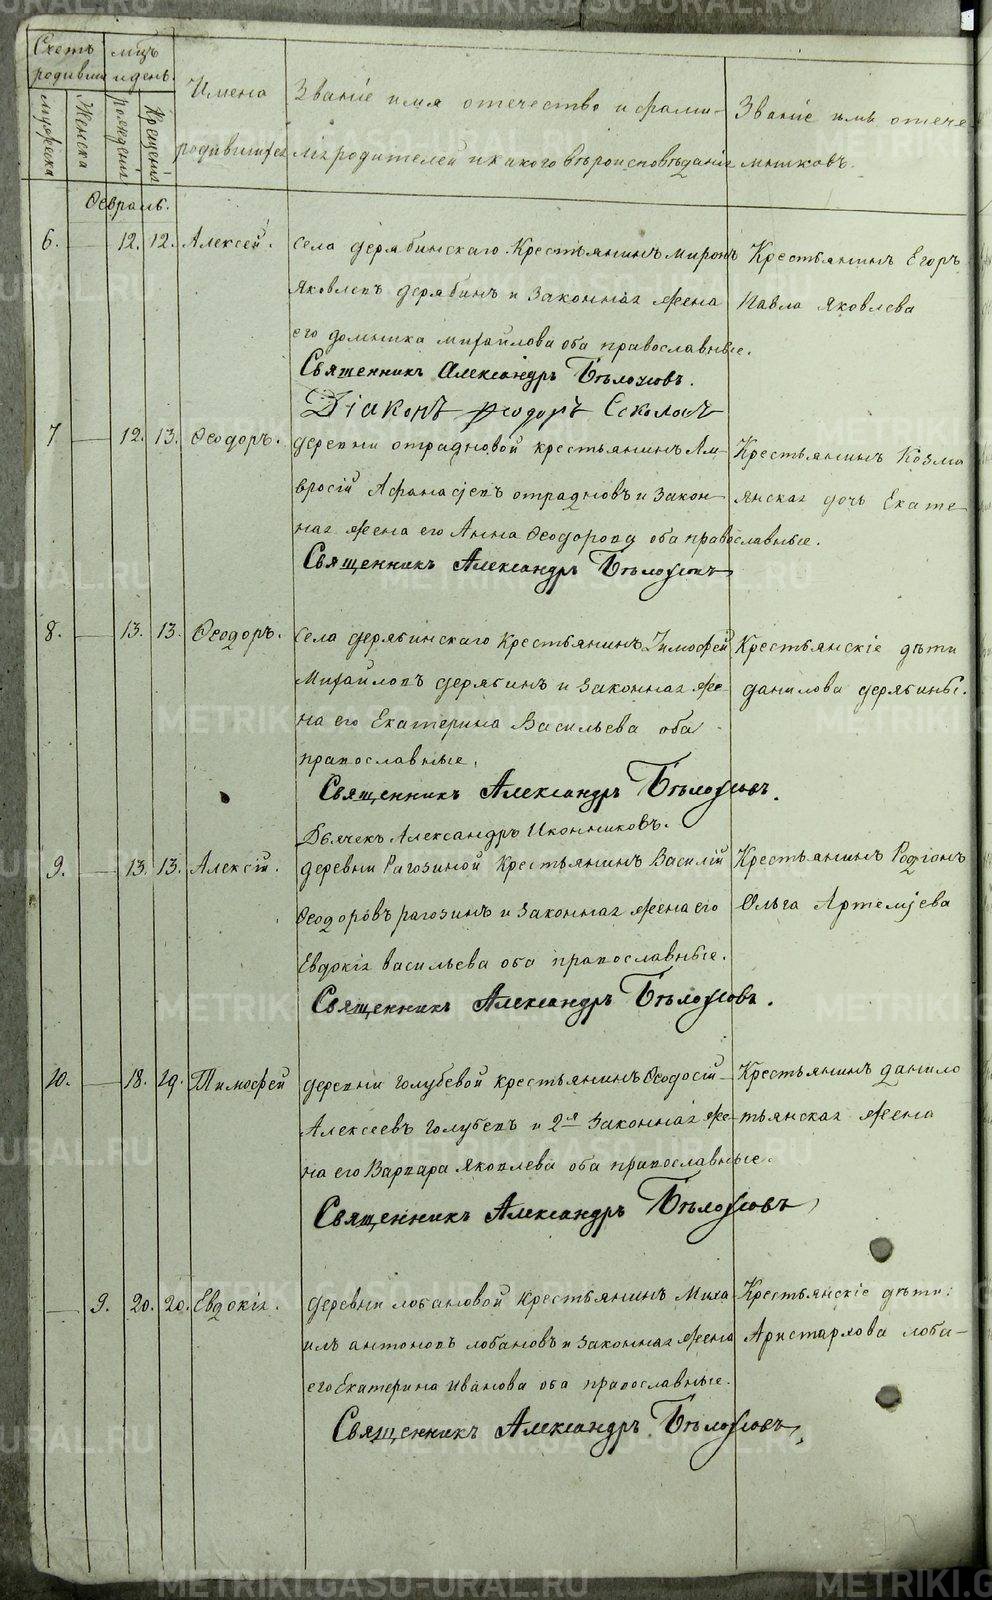 Счетъ родивши
мць и день.
мужеска
Женска
рождения
Крещения
Имена родившихся
Званіе имя отечество и фами-
лія родителей и какого вѣроисповѣданія
Званіе имя отече
мниковъ.
Февраль.
6. 12. 12. Алексей. Села дерябинскаго Крестьянинъ миронъ Крестьянинъ Егоръ
Яковлевъ дерябинъ и Законная жена Павла Яковлева
его домника михайлова оба православные.
Священникъ Александръ Бѣлоусовъ.
Діаконъ Феодоръ Соколовъ
7 12. 13. Феодоръ. деревни отрадновой крестьянинъ Ам- Крестьянинъ Козма
вросій Афанасьевъ отрадновъ и Закон- янская дочь Екате-
ная жена его Анна Феодорова оба православные.
Священникъ Александръ Бѣлоусовъ
8. 13. 13. Феодоръ. Села дерябинскаго Крестьянинъ Тимофей Крестьянскіе дѣти
Михайловъ дерябинъ и Законная же- данилова дерябины.
на его Екатерина Васильева оба
православные.
Священникъ Александръ Бѣлоусовъ.
Дьячекъ Александръ Иконниковъ.
9. 13. 13. Алексій. деревни Рагозиной Крестьянинъ Василій Крестьянинъ Родіонъ
Феодоровъ рагозинъ и Законная жена его Ольга Артемьева
Евдокія васильева оба православные.
Священникъ Александръ Бѣлоусовъ.
10. 18. 19. Тимофей деревни голубевой крестьянинъ Феодосій Крестьянинъ данило
Алексеевъ голубевъ и 2я Законная же- тьянская жена
на его Варвара Яковлева оба православные.
Священникъ Александръ Бѣлоусовъ
9. 20. 20. Евдокія. деревни лобановой Крестьянинъ Миха- Крестьянскіе дѣти:
илъ антоновъ лобановъ и Законная жена Аристархова лоба-
его Екатерина иванова оба православные.
Священникъ Александръ Бѣлоусовъ.
METRIKI.GASO-URAL.RU